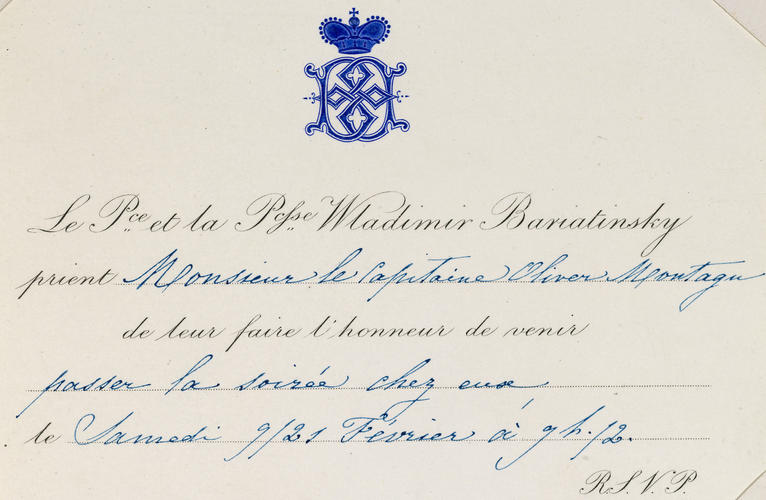 Le Pce et la Pcsse Wladimir Bariatinsky
prient Monsieur le Capitaine Oliver Montagu
de leur faire l'honneur de venir
passer la soirée chez eux
le Samedi 9/21 Février à 9h. 1/2.
R.S.V.P.